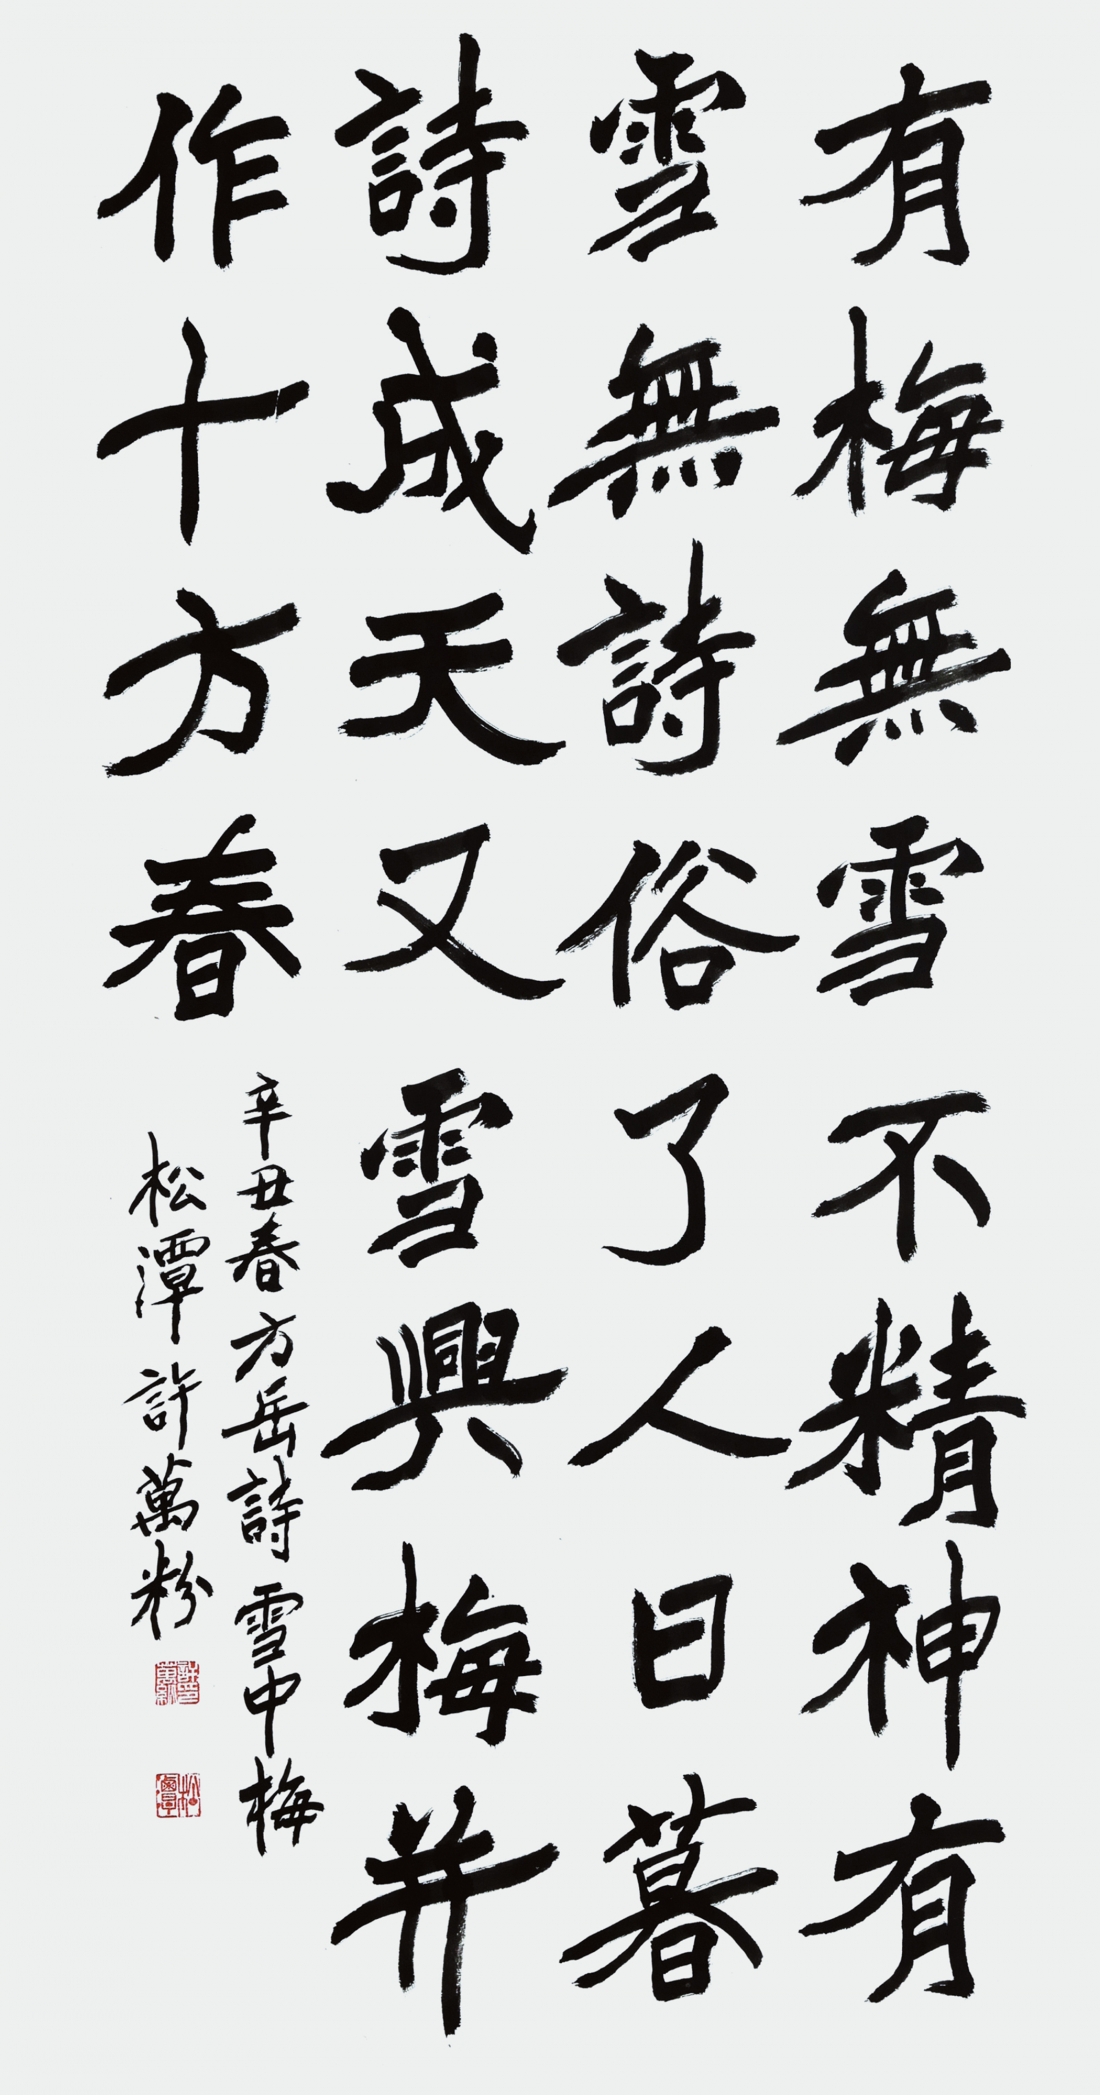 有梅無雪不精神有
雪無詩俗了人日暮
詩成天又雪興梅并
作十方春
辛丑春方岳詩雪中梅
松潭許萬粉
許印萬粉
松潭